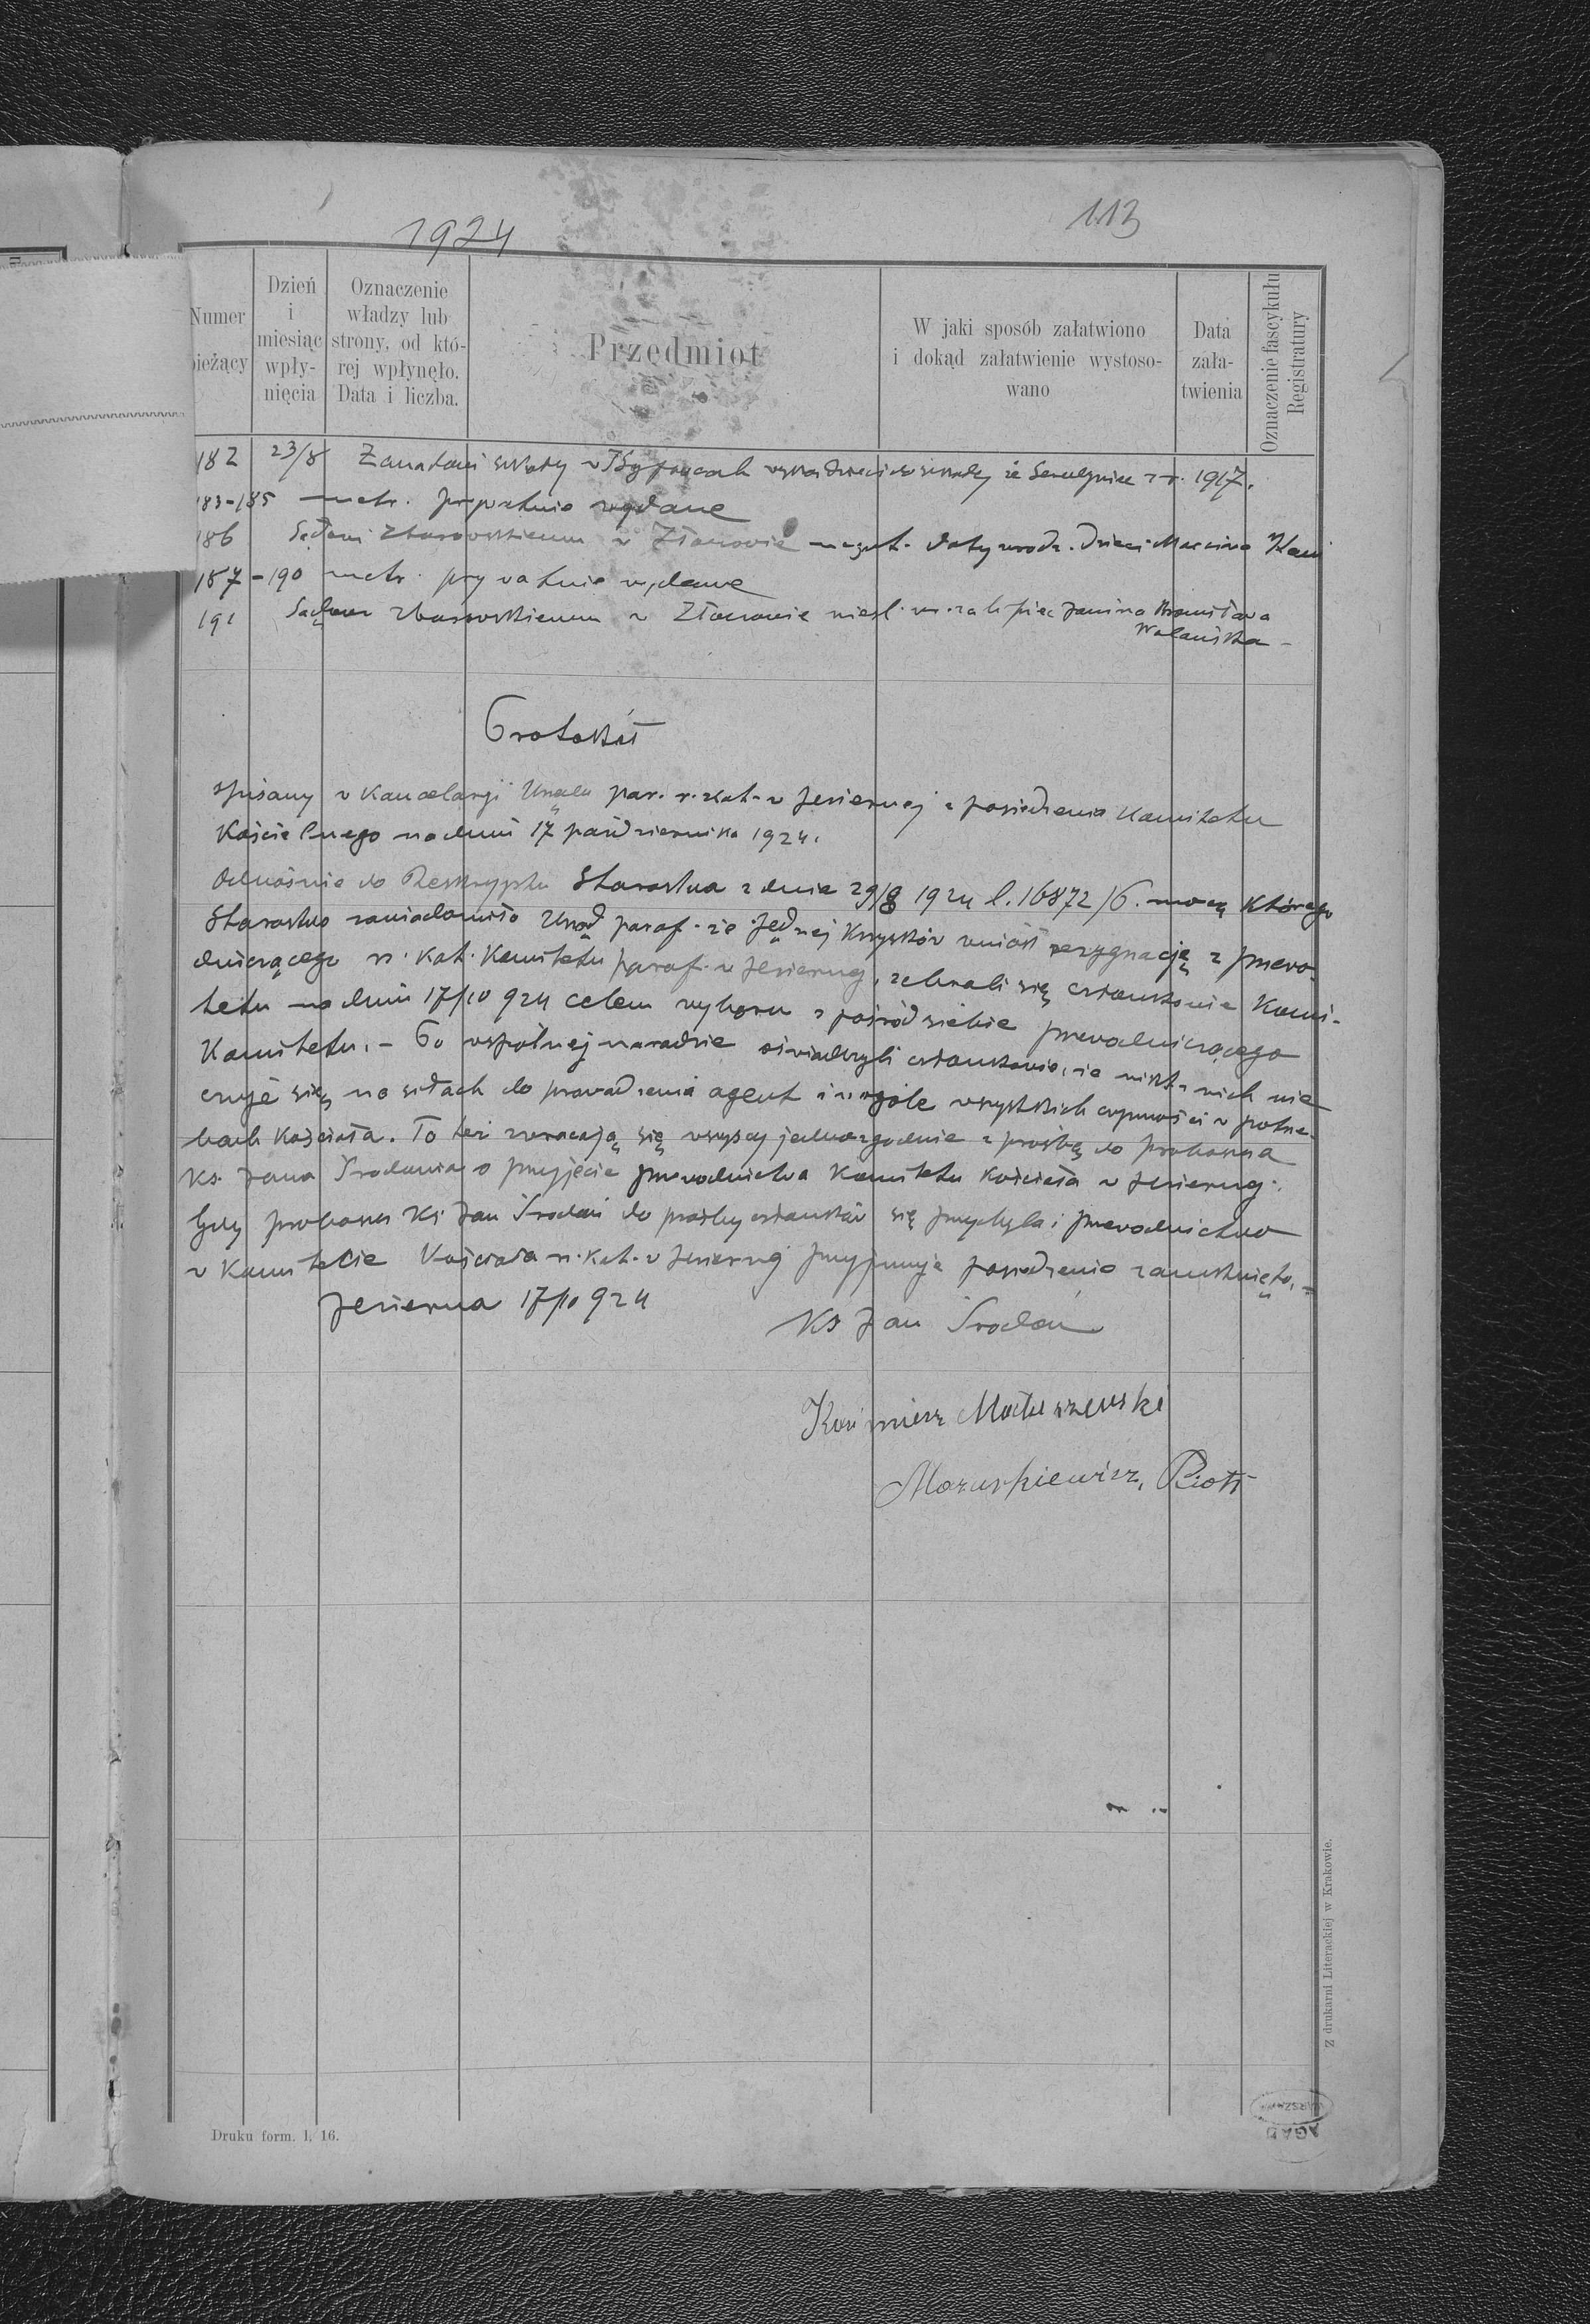 1924
113
Numer
bieżący
Dzień
i
miesiąc
wpły-
nięcia
Oznaczenie
władzy lub
strony, od któ-
rej wpłynęło.
Data i liczba.
Przedmiot
W jaki sposób załatwiono
i dokąd załatwienie wystoso-
wano
Data
zała-
twienia
Oznaczenie fascykułu
Registratury
182 23/8 Zarządowi szkoły w dzieci do szkoły ze r. 1917.
183-185 metr. prywatnie wydane
186 Sądowi Zborowskiemu w Złoczowie daty urodz. dzieci Marcina
187-190 metr. prywatnie wydane
191 Sądowi Zborowskiemu w Złoczowie Janina Bronisława
Wolańska -
Protokół
spisany w Kancelarji Urzędu par. r. kat. w Jeziernej z posiedzenia Komitetu
Kościelnego na dniu 17 października 1924.
Odnośnie do Reskryptu Starostwa z dnia 29/8 1924 l. 16872/6. mocą którego
Starostwo zawiadomiło Urząd paraf. że Jędrzej Krzysztów wniósł rezygnację z przewo
dniczącego r. kat. Komitetu paraf. w Jeziernej, zebrali się członkowie Komi-
tetu na dniu 17/10 924 celem wyboru z pośród siebie przewodniczącego
Komitetu. - Po wspólnej naradzie oświadczyli członkowie, że nikt z nich nie
czuje się na siłach do prowadzenia agent i w ogóle wszystkich czynności w potrze-
bach Kościoła. To też zwracają się wszyscy jednozgodnie z prośbą do proboszcza
Ks. Jana Środonia o przyjęcie przewodnictwa Komitetu Kościoła w Jeziernej.
Gdy proboszcz Ks Jan Środoń do prośby członków się przychyla i przewodnictwo
w Komitecie Kościoła r. kat. w Jeziernej przyjmuje posiedzenie zamknięto. -
Jezierna 17/10 924
Ks Jan Środoń
Kazimierz Matuszewski
Mozuskiewicz, Piotr
Z drukarni Literackiej w Krakowie.
Druku form. l. 16.
WARSZAWA
AGAD